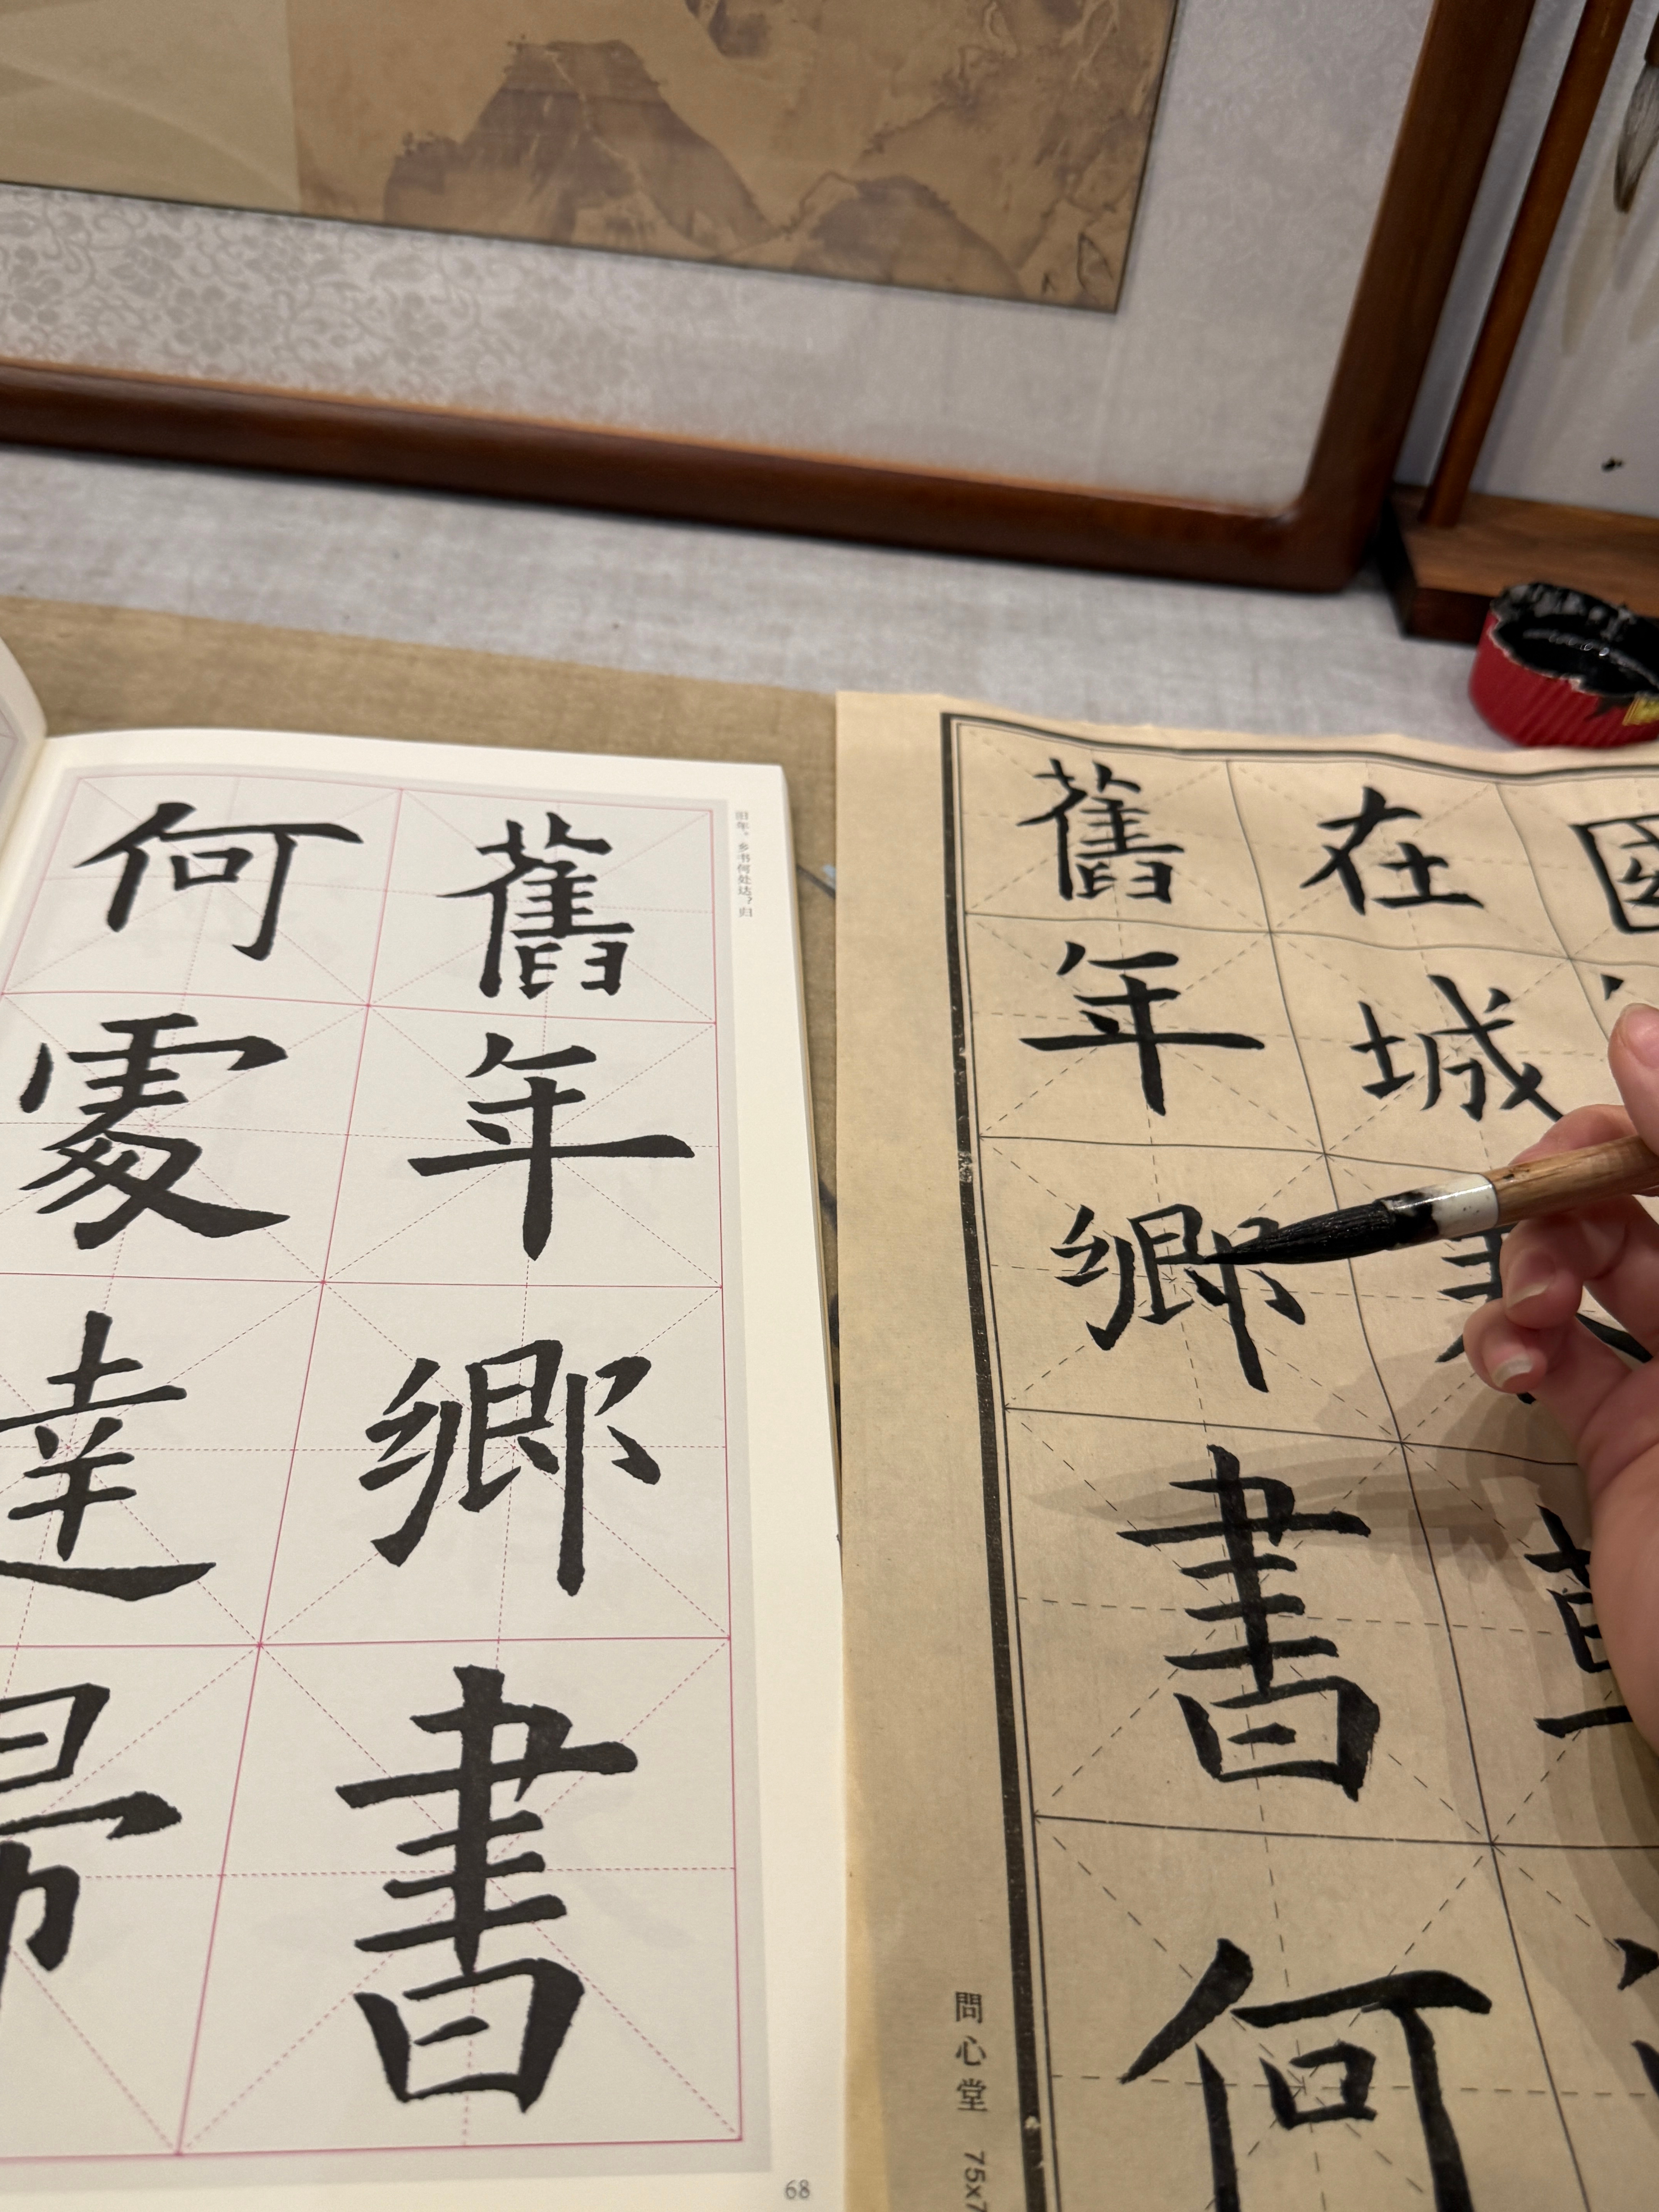 旧年。乡书何处达？归
舊年鄉書
何處達
68
國
在城
舊年鄉書何
問心堂 75x7